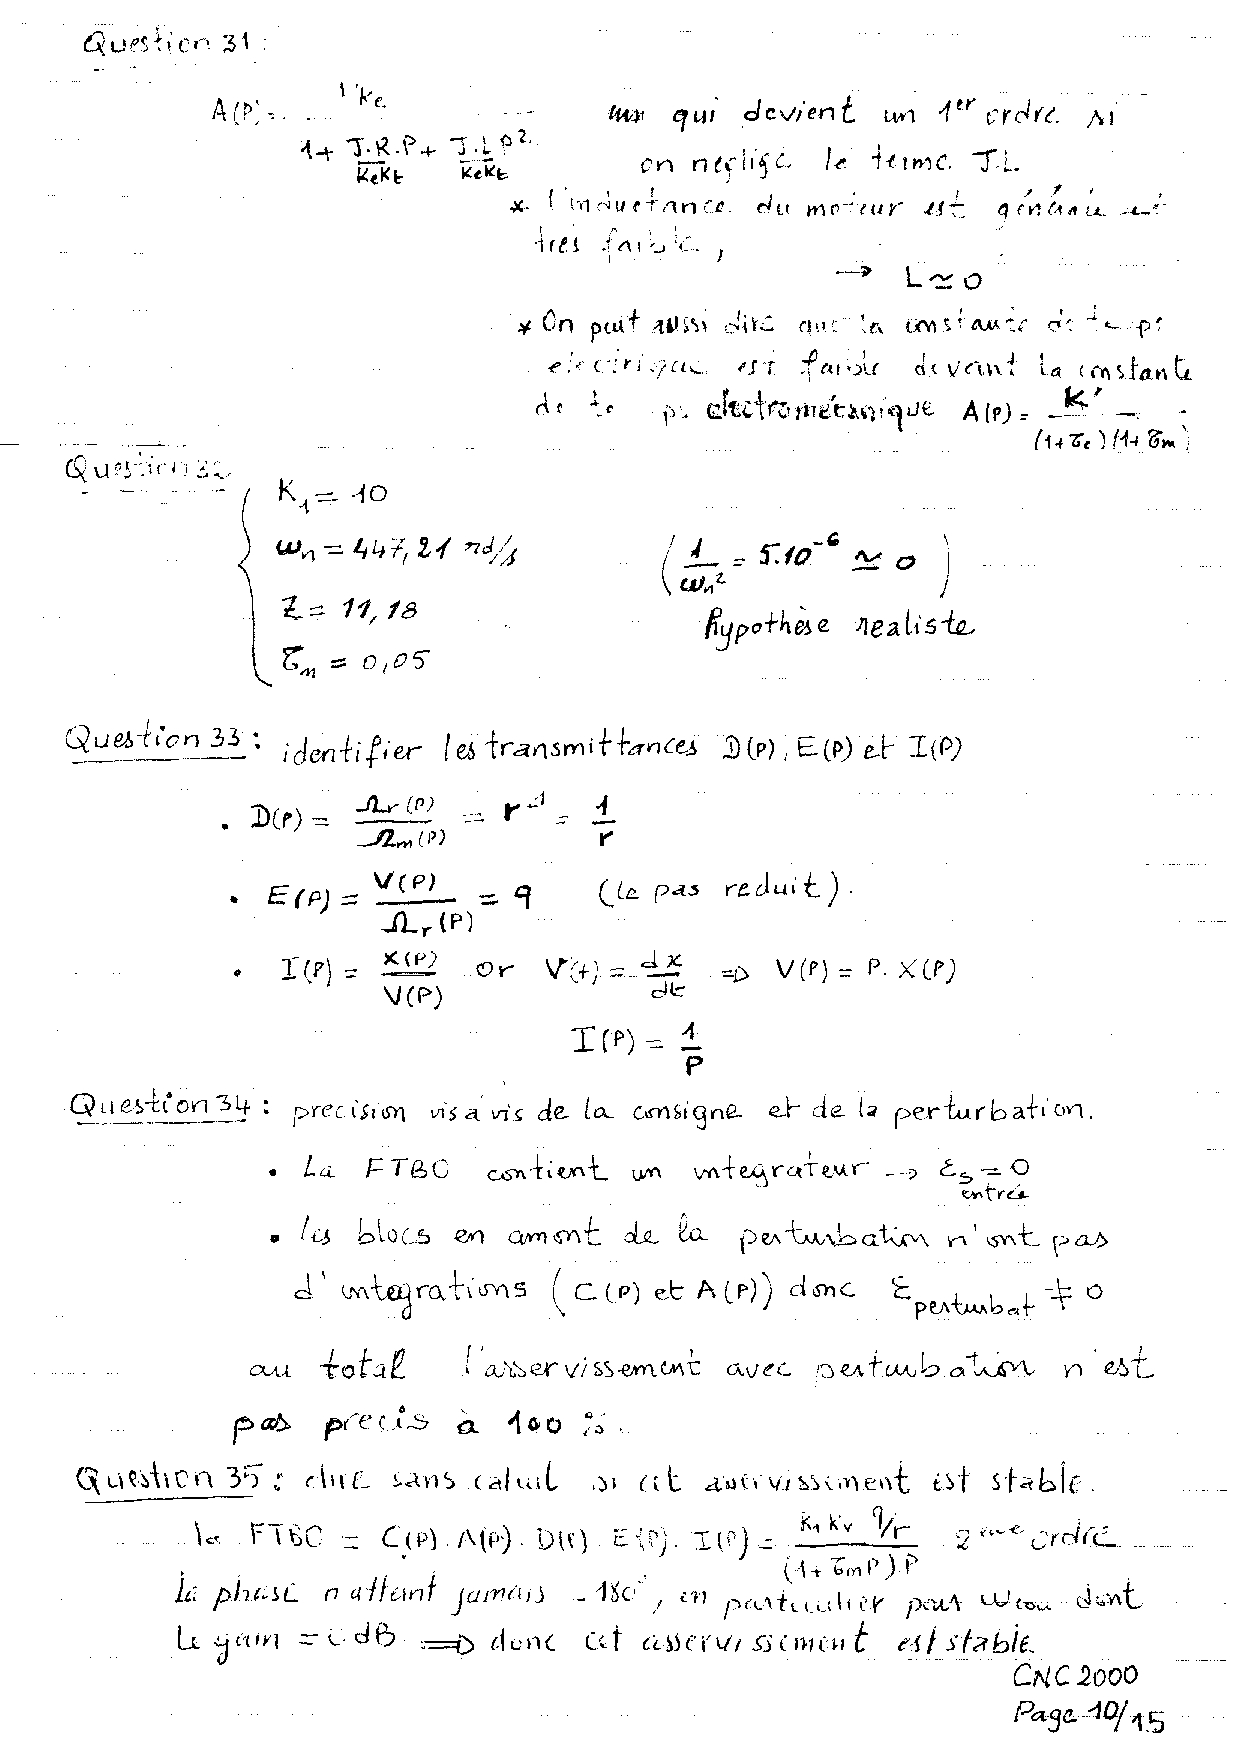 Question 31 :
A(P) = (1/Ke) / (1 + (J.R.P)/(KeKt) + (J.L P²)/(KeKt)) qui devient un 1er ordre si
on néglige le terme J.L.
* l'inductance du moteur est généralement
très faible,
→ L ≃ 0
* On peut aussi dire que la constante de temps
electrique est faible devant la constante
de temps electromécanique A(P) = K' / (1+τe)(1+τm)
Question 32
K1 = 10
ωn = 447,21 rd/s (1/ωn² = 5.10⁻⁶ ≃ 0)
Z = 11,18 hypothèse realiste
τm = 0,05
Question 33 : identifier les transmittances D(P), E(P) et I(P)
• D(P) = Ωr(P)/Ωm(P) = r⁻¹ = 1/r
• E(P) = V(P)/Ωr(P) = q (le pas reduit).
• I(P) = X(P)/V(P) or V(t) = dx/dt ⇒ V(P) = P. X(P)
I(P) = 1/P
Question 34 : precision vis a vis de la consigne et de la perturbation.
• La FTBO contient un integrateur → εs = 0
entrée
• les blocs en amont de la perturbation n'ont pas
d'integrations (C(P) et A(P)) donc εperturbat ≠ 0
au total l'asservissement avec perturbation n'est
pas precis à 100 %.
Question 35 : dire sans calcul si cet asservissement est stable.
la FTBO = C(P). A(P). D(P). E(P). I(P) = K1 Kv q/r / (1+τmP).P 2ème ordre
la phase n'atteint jamais -180°, en particulier pour ωco dont
le gain = 0 dB ⇒ donc cet asservissement est stable.
CNC 2000
Page 10/15